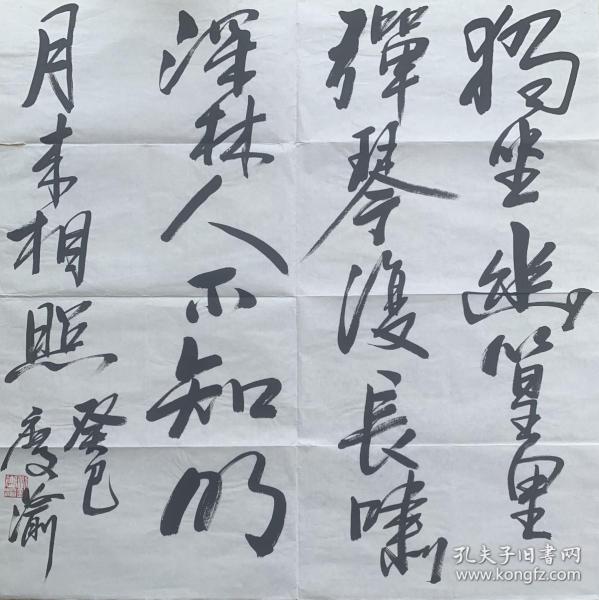 獨坐幽篁里
彈琴復長嘯
深林人不知明
月来相照
癸巳
慶渝
孔夫子旧书网
www.kongfz.com